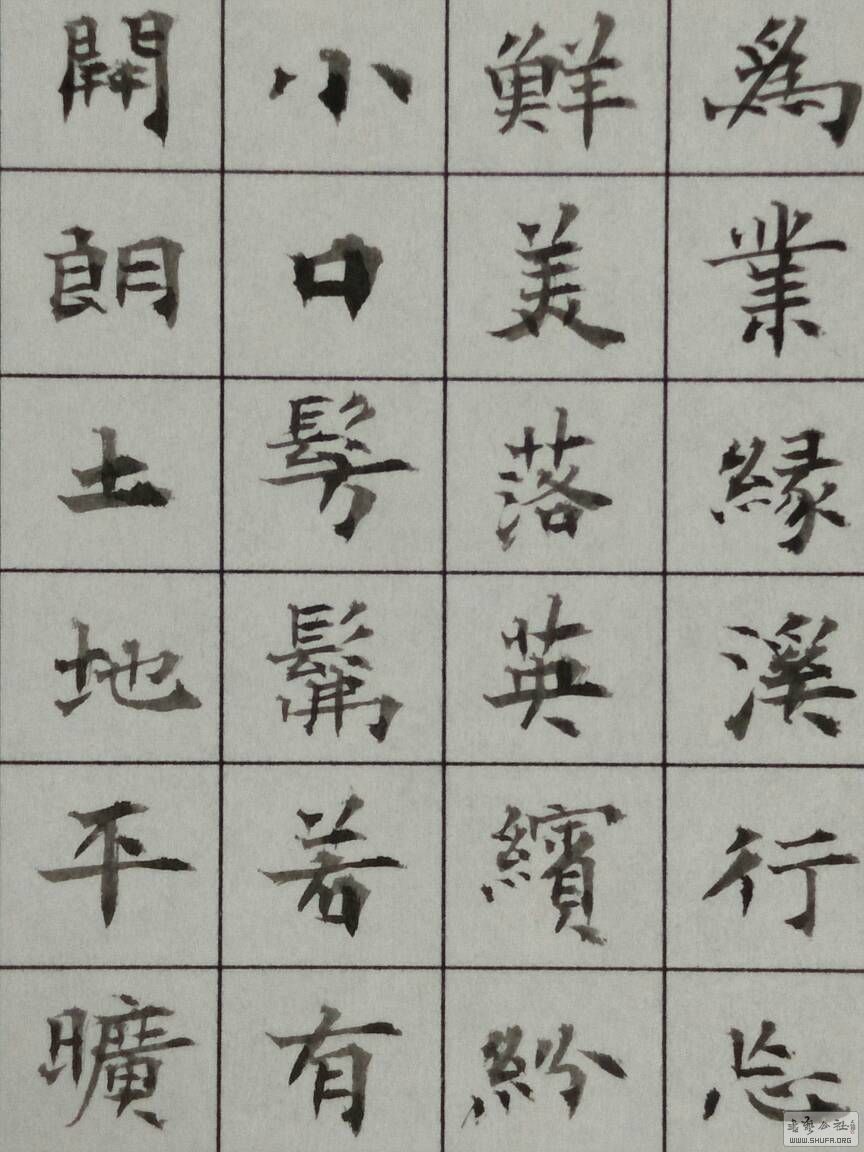 為業緣溪行忘
鮮美落英繽紛
小口髣髴若有
開朗土地平曠
WWW.SHUFA.ORG